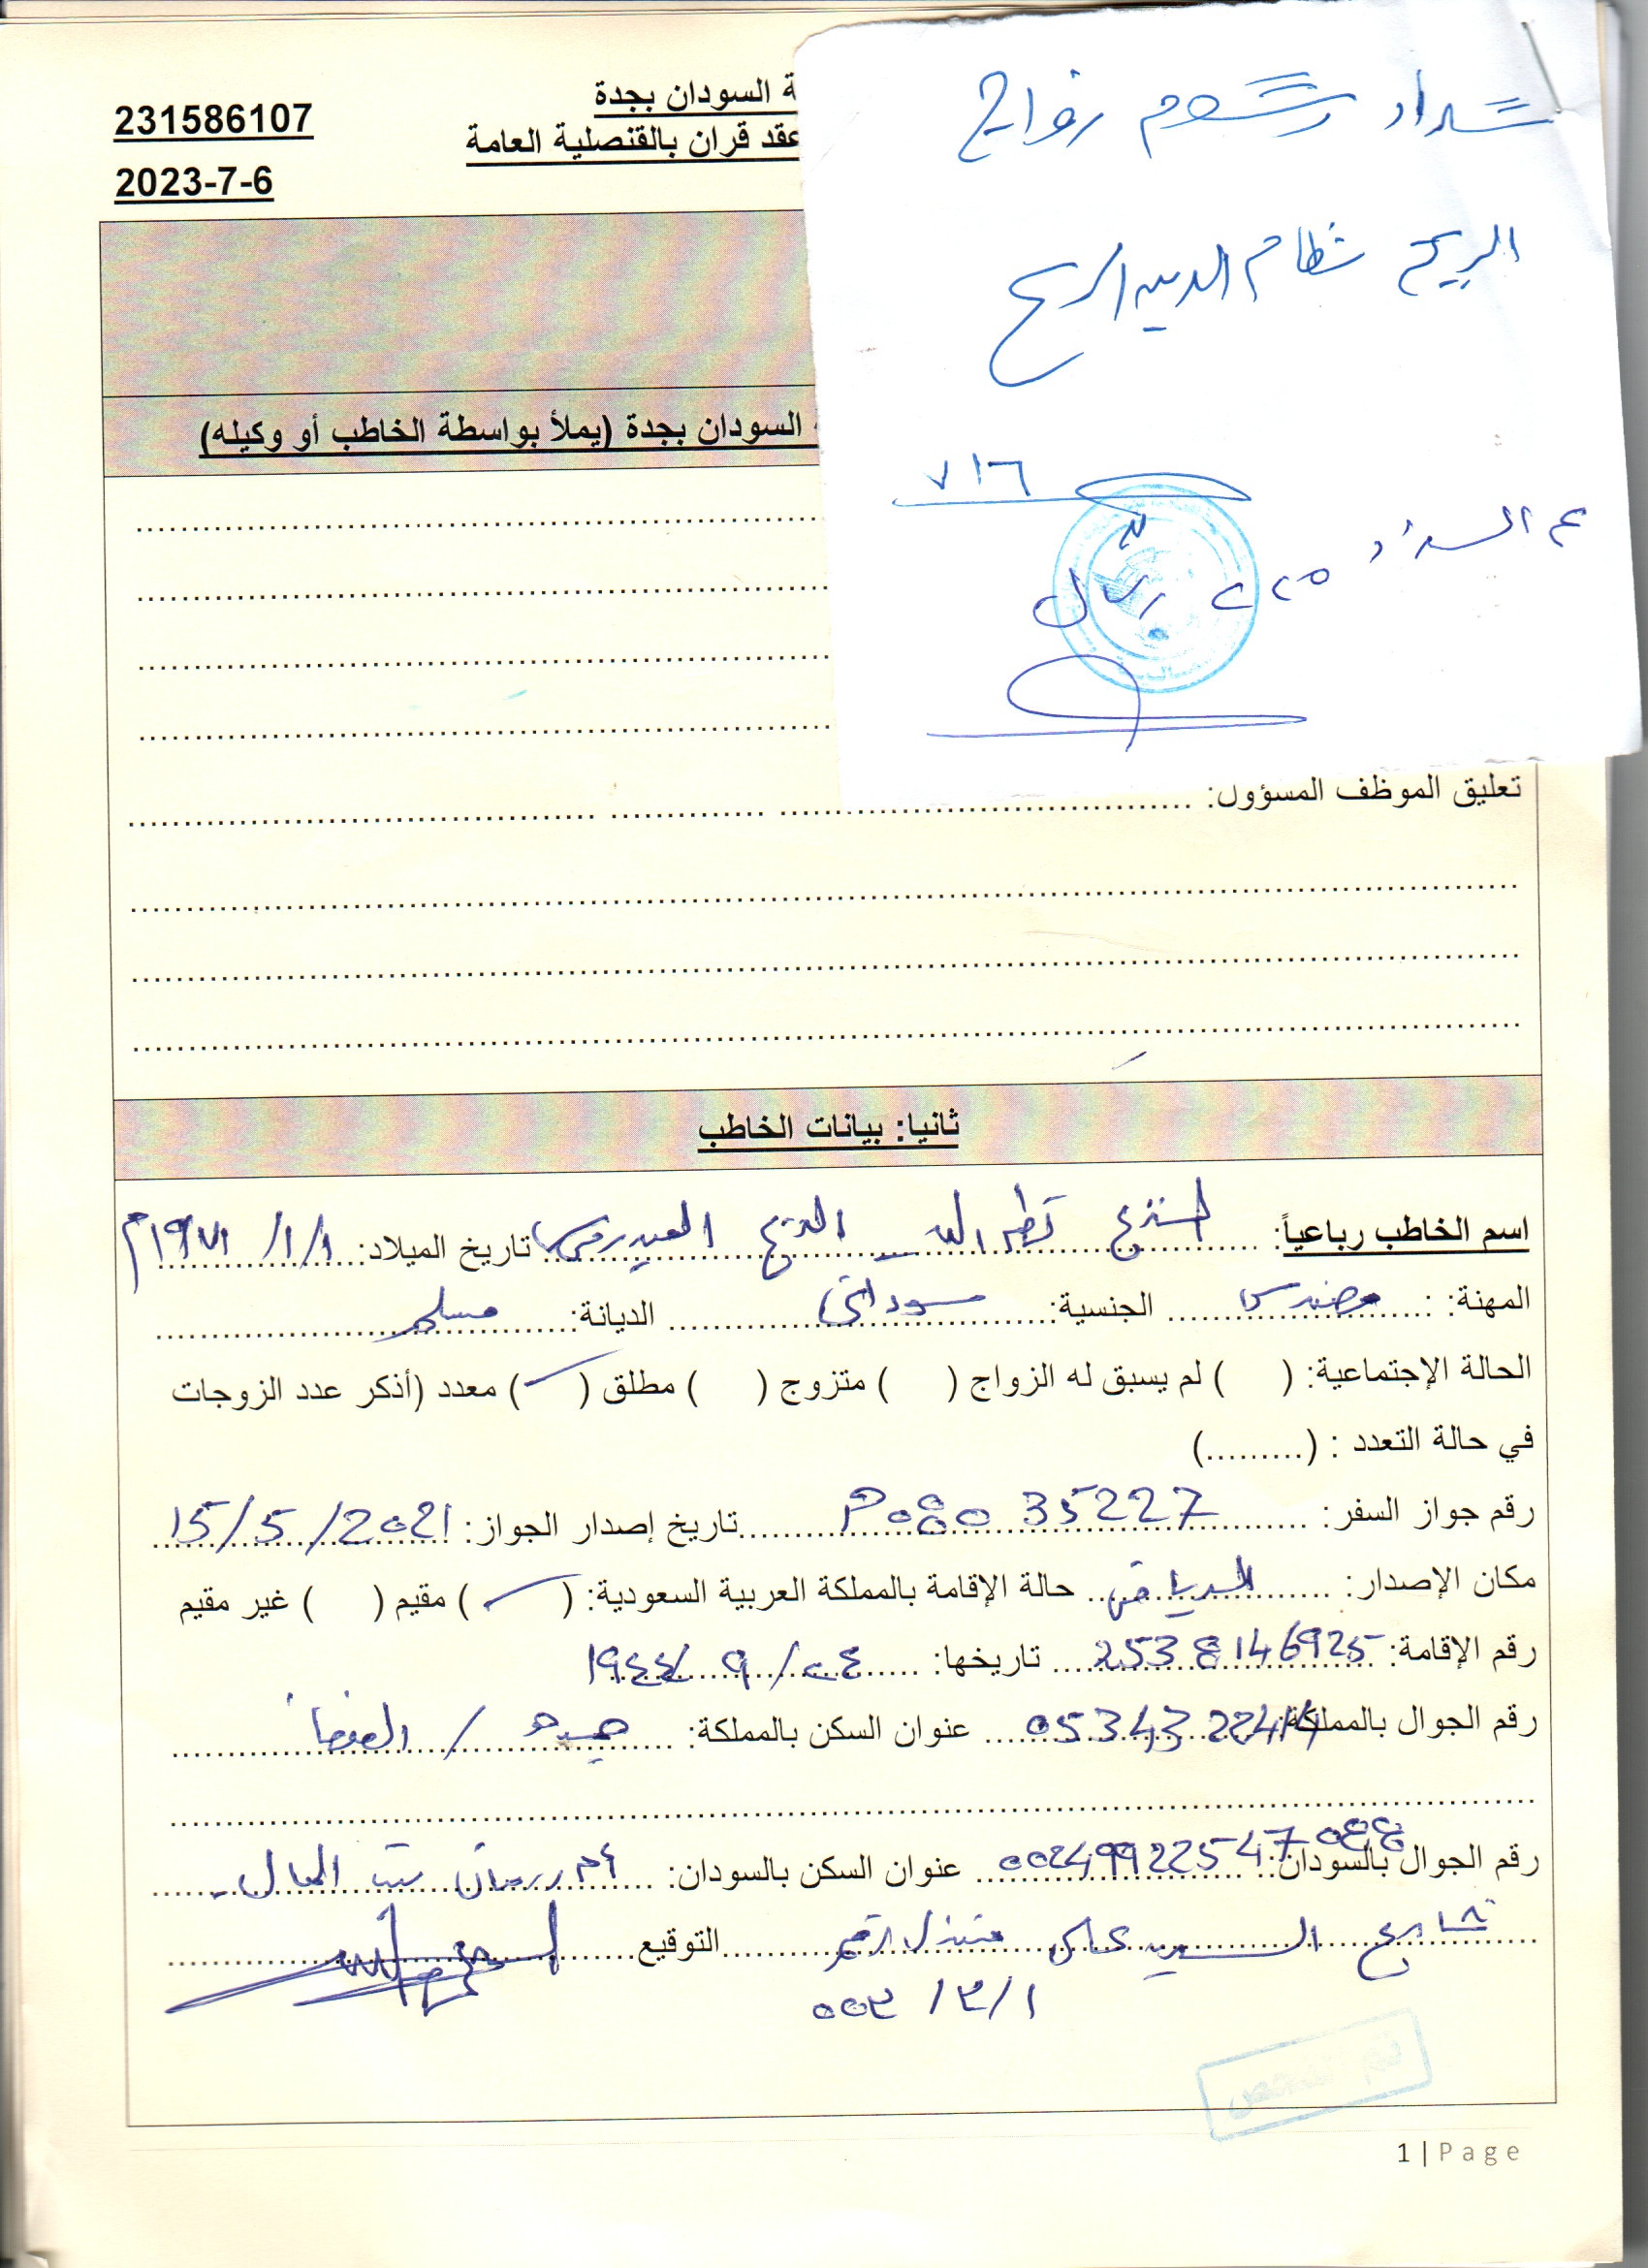 ة السودان بجدة
عقد قران بالقنصلية العامة
231586107
2023-7-6
سداد رسوم زواج
الريح نظام الدين الريح
٧/٦
تم السداد
٢٢٥ ريال
السودان بجدة (يملأ بواسطة الخاطب أو وكيله)
تعليق الموظف المسؤول:
ثانيا: بيانات الخاطب
اسم الخاطب رباعياً: الريح نظام الدين الريح تاريخ الميلاد: ١/١/١٩٧١م
المهنة: : مهندس الجنسية: سوداني الديانة: مسلم
الحالة الإجتماعية: ( ) لم يسبق له الزواج ( ) متزوج ( ) مطلق ( ) معدد (أذكر عدد الزوجات
في حالة التعدد : (.........)
رقم جواز السفر: P08035227 تاريخ إصدار الجواز: 15/5/2021
مكان الإصدار: الرياض حالة الإقامة بالمملكة العربية السعودية: ( ) مقيم ( ) غير مقيم
رقم الإقامة: 2538146925 تاريخها:
رقم الجوال بالمملكة: عنوان السكن بالمملكة: جده / الصفا
رقم الجوال بالسودان: 00249922547088 عنوان السكن بالسودان: أم درمان بيت المال
شارع السيد علي منزل رقم التوقيع
١/٣/
1 | Page